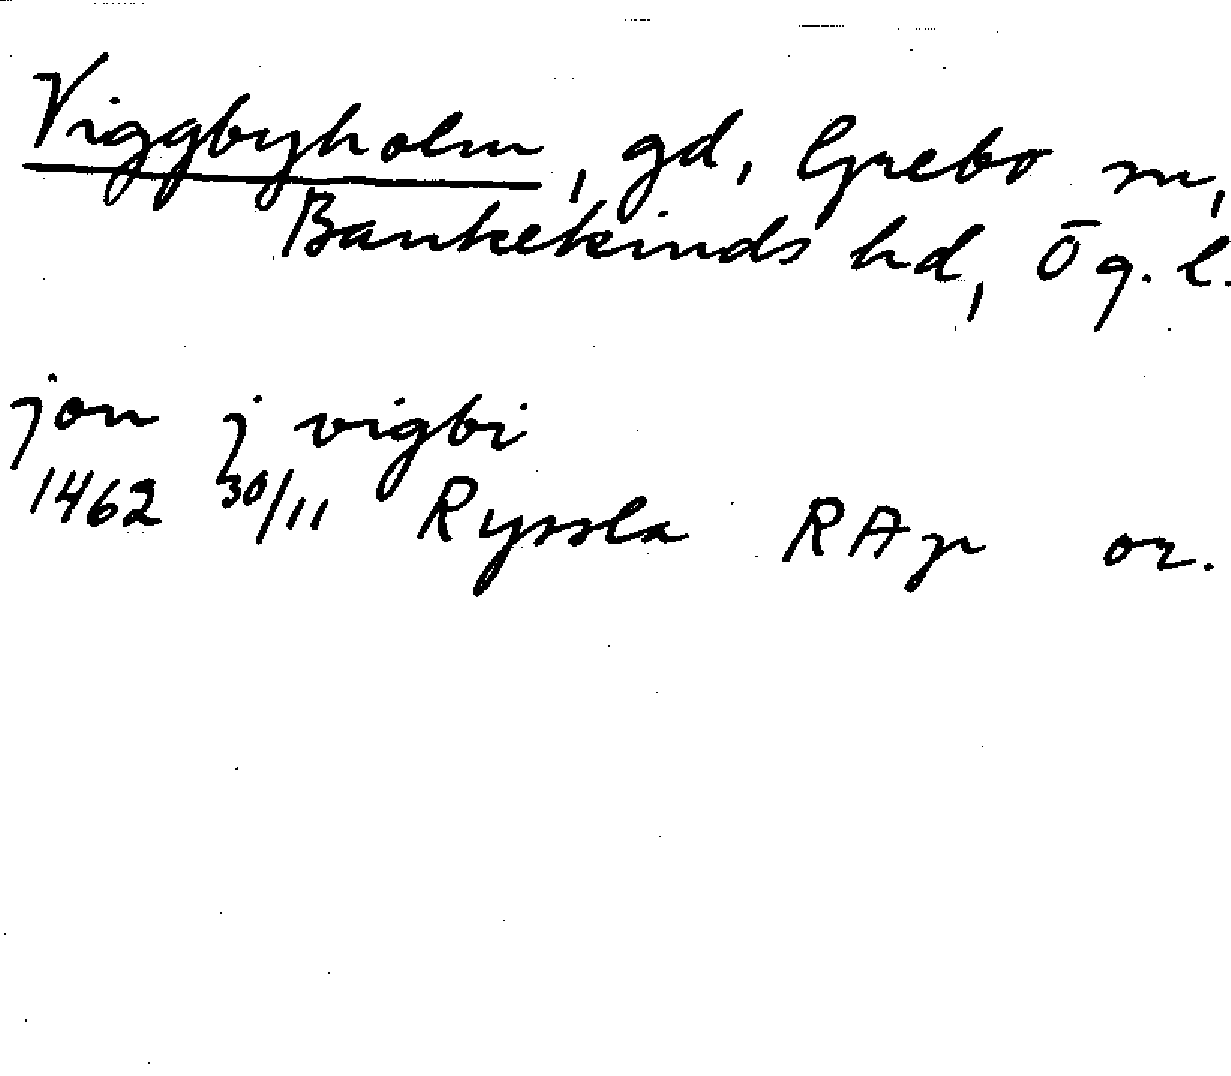 Viggbyholm, gd, Grebo sn,
Bankekinds hd, Ög. l.
jon j vigbi
1462 30/11 Ryssla RAp or.